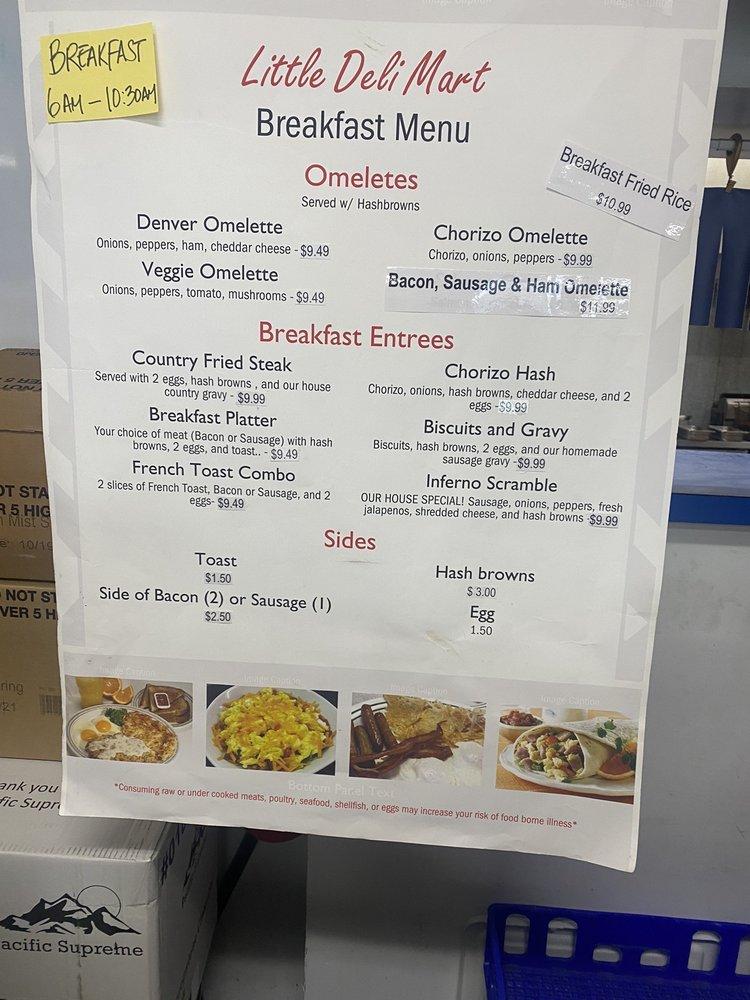 BREAKFAST
6AM - 10:30AM
Little Deli Mart
Breakfast Menu
Breakfast Fried Rice
$10.99
Omeletes
Served w/ Hashbrowns
Denver Omelette
Onions, peppers, ham, cheddar cheese - $9.49
Veggie Omelette
Onions, peppers, tomato, mushrooms - $9.49
Chorizo Omelette
Chorizo, onions, peppers - $9.99
Bacon, Sausage & Ham Omelette
$11.99
Breakfast Entrees
Country Fried Steak
Served with 2 eggs, hash browns , and our house
country gravy - $9.99
Breakfast Platter
Your choice of meat (Bacon or Sausage) with hash
browns, 2 eggs, and toast.. - $9.49
French Toast Combo
2 slices of French Toast, Bacon or Sausage, and 2
eggs- $9.49
Chorizo Hash
Chorizo, onions, hash browns, cheddar cheese, and 2
eggs -$9.99
Biscuits and Gravy
Biscuits, hash browns, 2 eggs, and our homemade
sausage gravy -$9.99
Inferno Scramble
OUR HOUSE SPECIAL! Sausage, onions, peppers, fresh
jalapenos, shredded cheese, and hash browns -$9.99
Sides
Toast
$1.50
Side of Bacon (2) or Sausage (1)
$2.50
Hash browns
$ 3.00
Egg
1.50
Image Caption
Image Caption
Image Caption
Image Caption
Bottom Panel Text
*Consuming raw or under cooked meats, poultry, seafood, shellfish, or eggs may increase your risk of food borne illness*
OT STA
R 5 HIG
Mist S
10/19
NOT ST
VER 5 H
ring
/21
ank you
fic Supr
acific Supreme